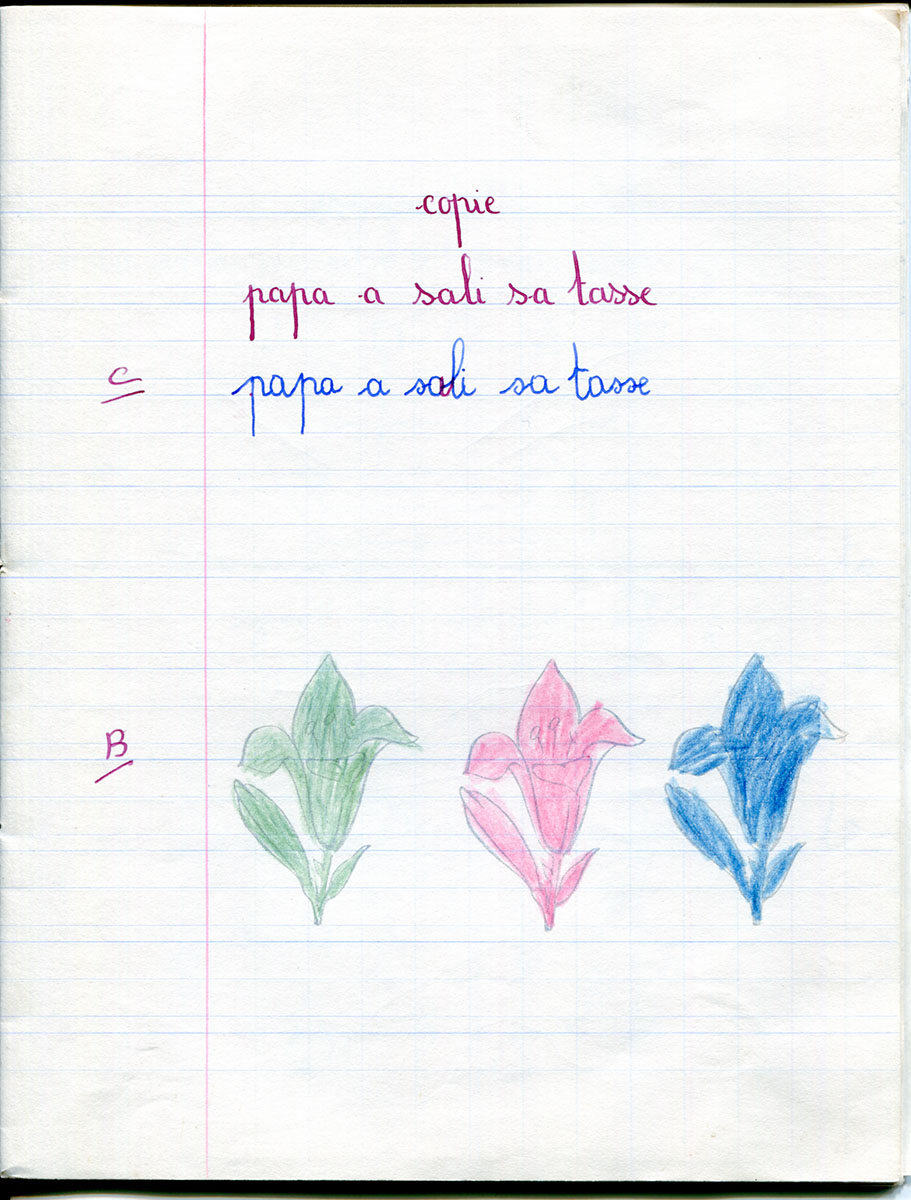 copie
papa a sali sa tasse
C papa a sali sa tasse
B